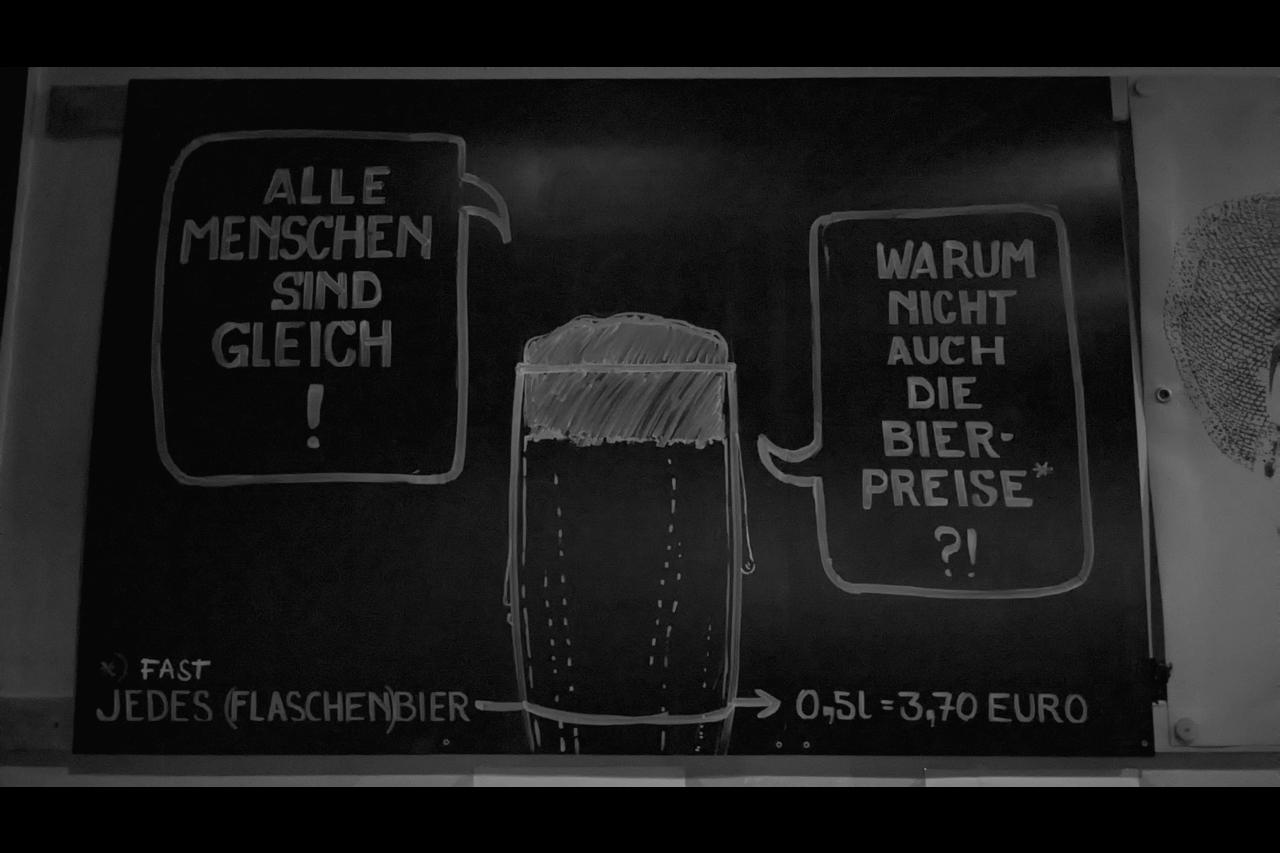 ALLE
MENSCHEN
SIND
GLEICH
!
WARUM
NICHT
AUCH
DIE
BIER-
PREISE*
?!
*) FAST
JEDES (FLASCHEN)BIER → 0,5l = 3,70 EURO